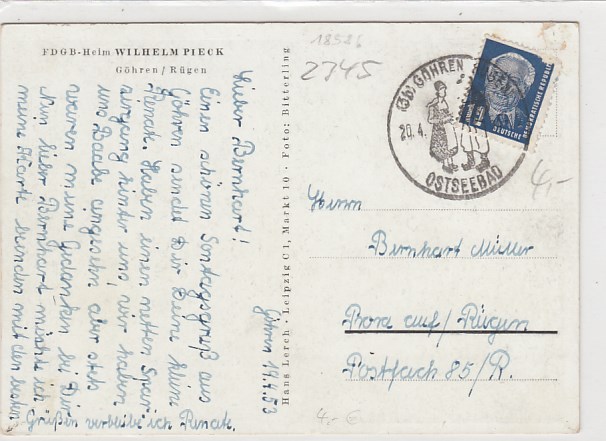 FDGB-Heim WILHELM PIECK
Göhren / Rügen
Göhren 19.4.53
Lieber Bernhart!
Einen schönen Sonntagsgruß aus
Göhren sendet Dir Deine kleine
Renate. Haben einen netten Spa-
ziergang hinter uns, wir haben
uns Baabe angesehen aber stets
waren meine Gedanken bei Dir.
Nun lieber Bernhart möchte ich
meine Karte beenden mit den besten
Grüßen verbleibe ich Renate.
Hans Lerch · Leipzig C 1, Markt 10 · Foto: Bitterling
18526
2745
(3b) GÖHREN
20.4.
OSTSEEBAD
DEUTSCHE DEMOKRATISCHE REPUBLIK
4,-
Herrn
Bernhart Müller
Prora auf/Rügen
Postfach 85/R.
4,- €